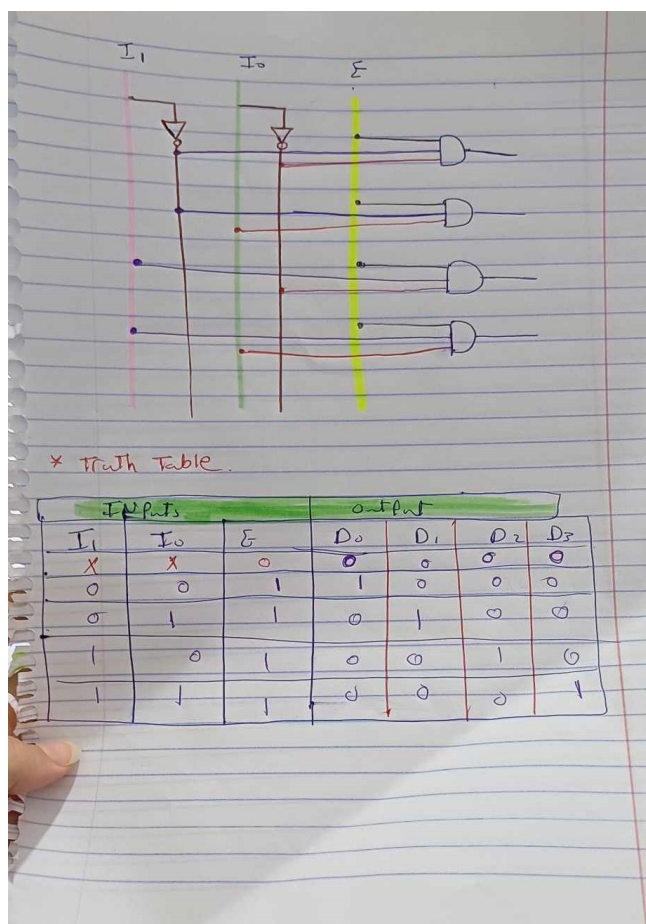 I1 I0 E
* Truth Table.
Inputs output
I1 I0 E D0 D1 D2 D3
X X 0 0 0 0 0
0 0 1 1 0 0 0
0 1 1 0 1 0 0
1 0 1 0 0 1 0
1 1 1 0 0 0 1